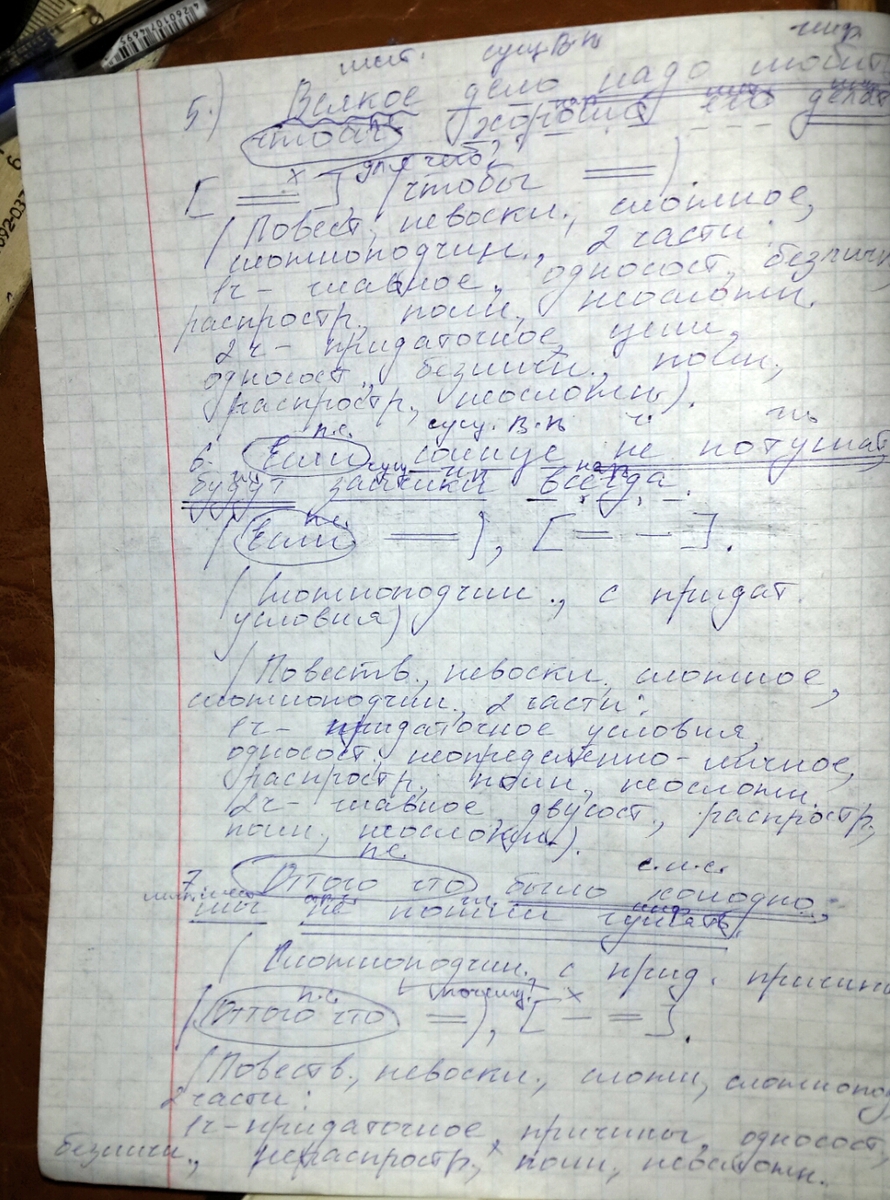 мест. сущ. В.п. инф.
5.) Всякое дело надо любить,
чтобы хорошо его делать
[ == х ], для чего? (чтобы == )
(Повест., невоскл., сложное,
сложноподчин., 2 части:
1ч - главное, односост., безличн.,
распростр., полн., неосложн.
2ч - придаточное, цели,
односост., безличн., полн.,
распростр., неосложны).
п.с. сущ. В.п. ч. гл.
6. Если солнце не потушат,
гл. сущ. И.п. нар.
будут зайчики всегда.
п.с.
(Если == ), [ = — ].
(Сложноподчин., с придат.
условия)
(Повеств., невоскл., сложное,
сложноподчин., 2 части:
1ч - придаточное условия,
односост. неопределенно-личное,
распростр., полн., неосложн.
2ч - главное, двусост., распростр.,
полн., неосложнн).
п.с. с.к.с.
7. Оттого что было холодно,
мы не пошли гулять.
(Сложноподчин., с прид. причины
п.с. почему? х
(Оттого что == ), [ — = ].
(Повеств., невоскл., сложн., сложнопод
2 части:
1ч - придаточное, причины, односост,
безличн., нераспростр., полн., неосложн.